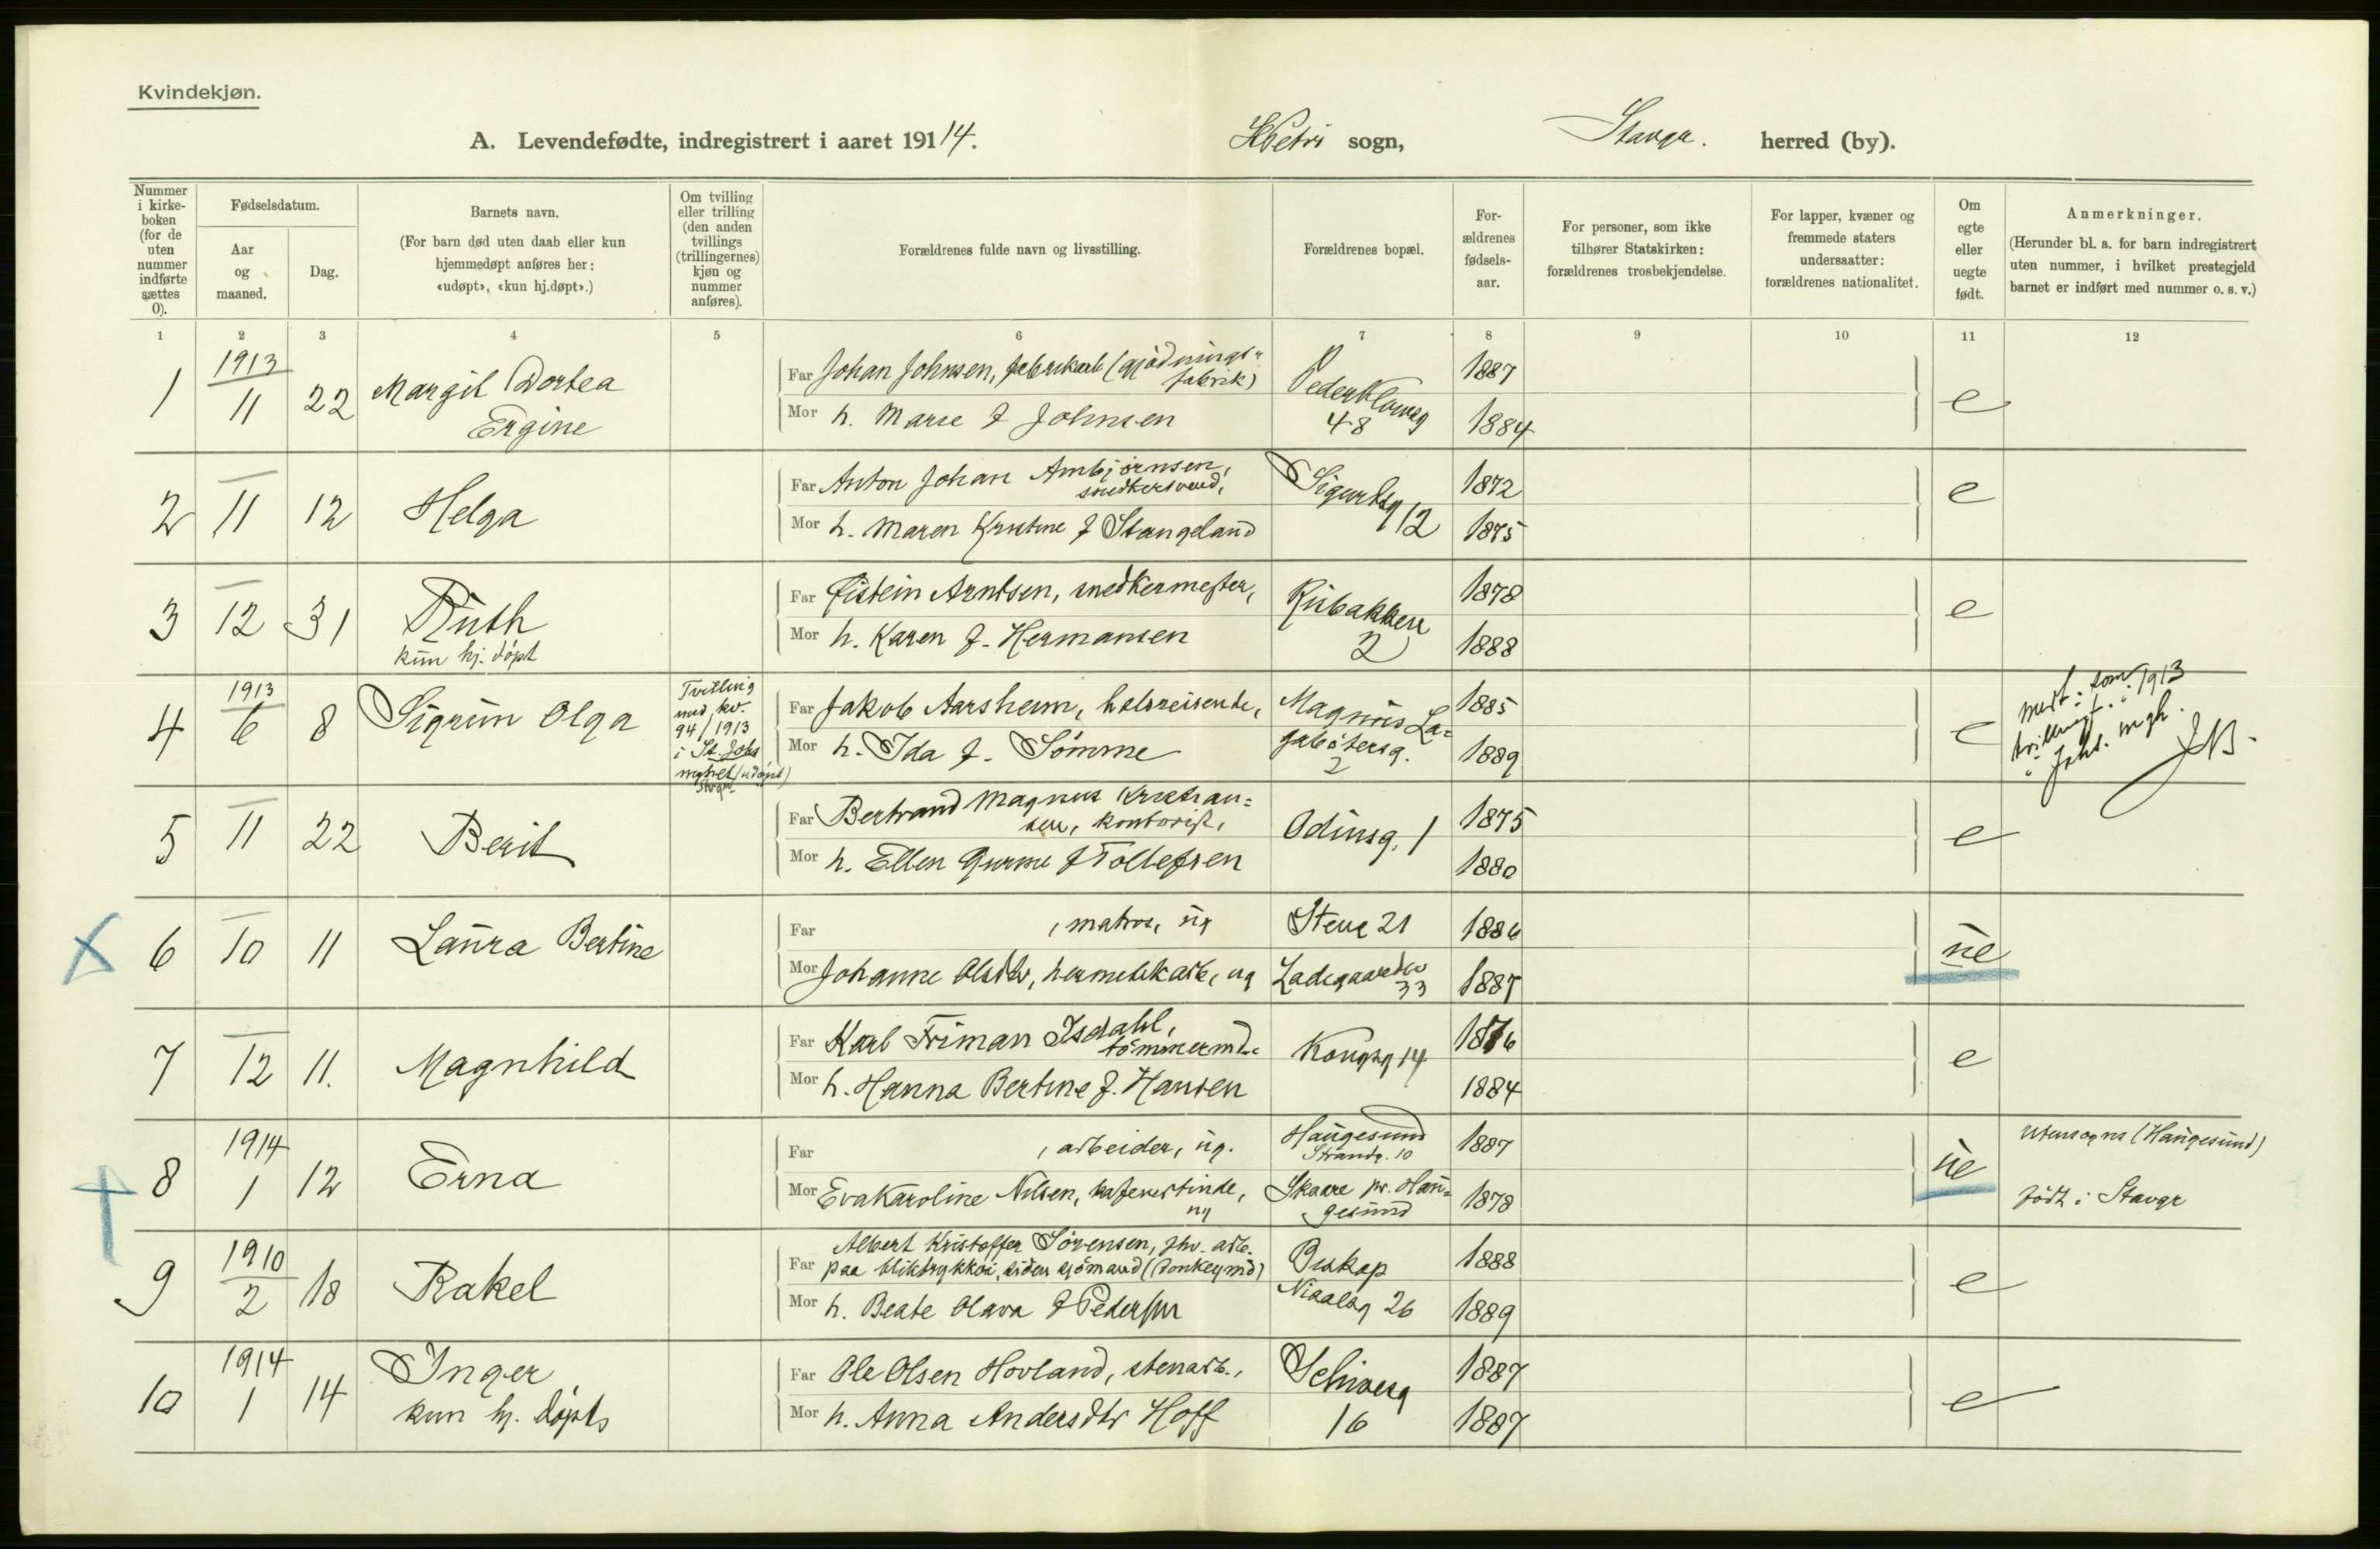 Kvindekjøn.
A. Levendefødte, indregistrert i aaret 19114. sogn, Stavgr. herred (by).
Nummer i kirke-boken (for de uten nummer indførte sættes 0).
Fødselsdatum.
Aar og maaned.
Dag.
Barnets navn.
(For barn død uten daab eller kun hjemmedøpt anføres her: «udøpt», «kun hj.døpt».)
Om tvilling eller trilling (den anden tvillings (trillingernes) kjøn og nummer anføres).
Forældrenes fulde navn og livsstilling.
Forældrenes bopæl.
For-ældrenes fødsels-aar.
For personer, som ikke tilhører Statskirken: forældrenes trosbekjendelse.
For lapper, kvæner og fremmede staters undersaatter: forældrenes nationalitet.
Om egte eller uegte født.
Anmerkninger.
(Herunder bl. a. for barn indregistrert uten nummer, i hvilket prestegjeld barnet er indført med nummer o. s. v.)
1 2 3 4 5 6 7 8 9 10 11 12
1 1913 11 22 Margit Dortea
Ergine
Far Johan Johnsen, fabrikarb (gjødnings-
fabrik)
Mor h. Marie f Johnsen
Peder Klowsg
48
1887
1884
e
2 11 12 Helga
Far Anton Johan Ambjørnsen,
snedkersvend,
Mor h. Maren Kristine f Stangeland
Sigurdsg
12
1872
1875
e
3 12 31 Ruth
kun hj. døpt
Far Eistein Arntsen, snedkermester,
Mor h. Karen f. Hermansen
Kirbakken
2
1878
1888
e
4 1913 6 8 Sigrun Olga
Tvilling
med kv.
94/1913
i St. Johs
mghet (udøpt)
Stvgr
Far Jakob Aarsheim, halsreisende,
Mor h. Ida f. Sømme
Magnus La-
gabøtersg.
2
1885
1889
e
1913
JB.
5 11 22 Berit
Far Bertrand Magnus Kristian-
sen, kontorist,
Mor h. Ellen Gurine f Tollefsen
Odinsg. 1
1875
1880
e
6 10 11 Laura Bertine
Far , matros, ug
Mor Johanne Olsdtr, hermetikarb, ug
Stene 21
Ladegaardsv
33
1886
1887
ue
7 12 11. Magnhild
Far Karl Friman Isdahl,
tømmermd.
Mor h. Hanna Bertine f. Hansen
Kongsg 14
1876
1884
e
8 1914 1 12 Erna
Far , arbeider, ug.
Mor Eva Karoline Nilsen, kafevertinde,
ug
Haugesund
Strandg. 10
Skaare pr. Hau-
gesund
1887
1878
ue
Utensogns (Haugesund)
født i Stavgr
9 1910 2 18 Rakel
Albert Kristoffer Sørensen, fhv. arb.
Far paa bliktrykkeri, siden sjømand (Donkeymd)
Mor h. Beate Olava f Pedersen
Biskop
Nialsg 26
1888
1889
e
10 1914 1 14 Inger
kun hj. døpts
Far Ole Olsen Hovland, stenarb.,
Mor h. Anna Andersdtr Hoff
16
1887
1887
e